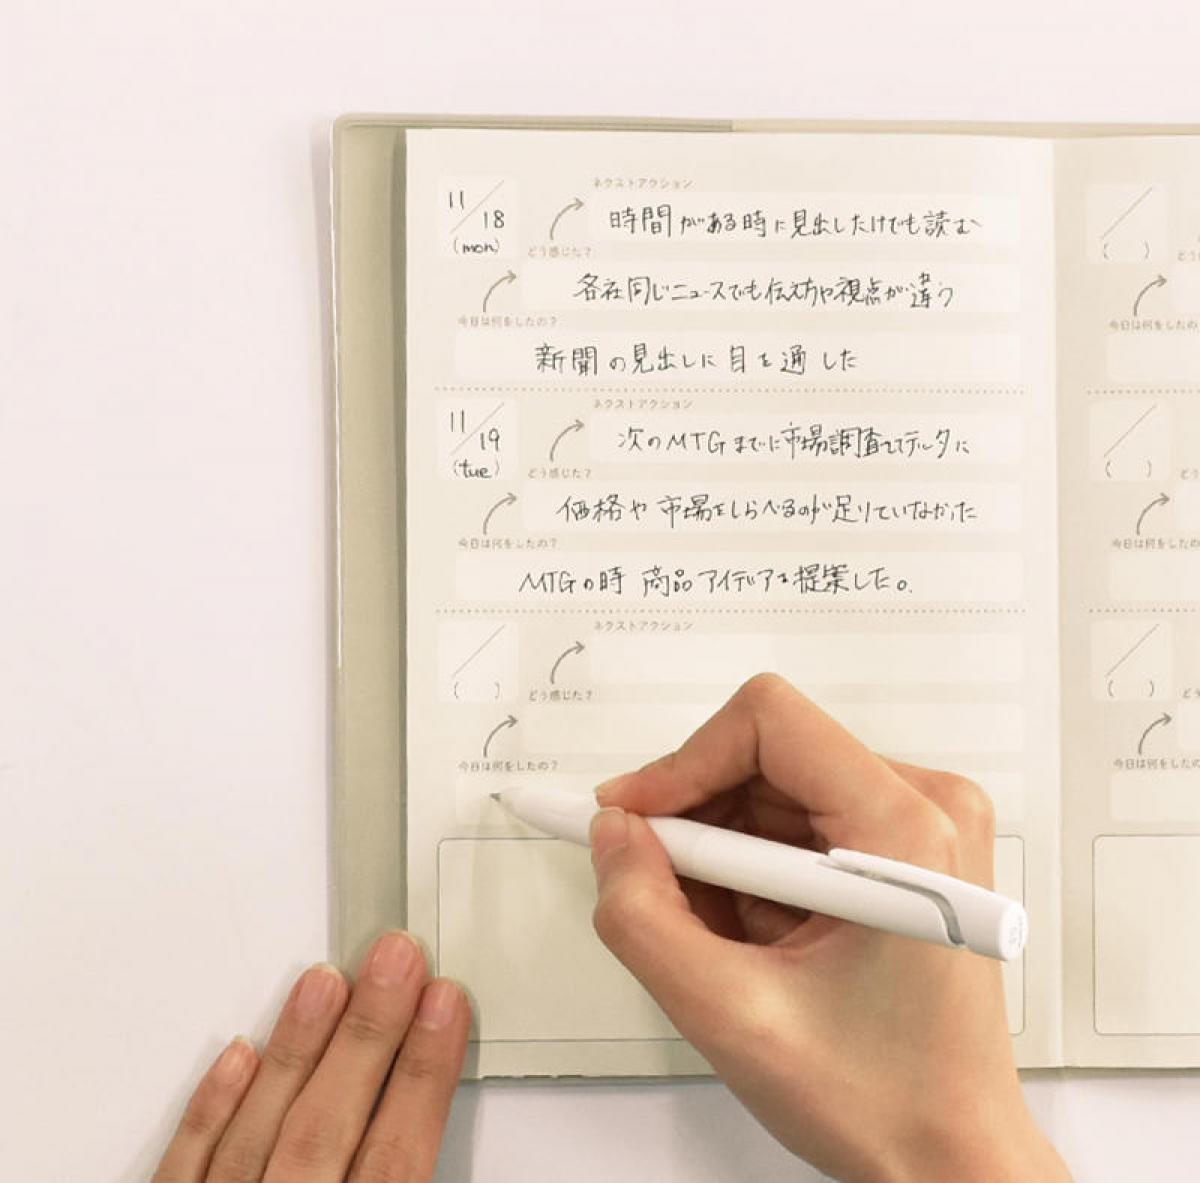 11/18
(mon)
ネクストアクション
時間がある時に見出しだけでも読む
どう感じた?
各社同じニュースでも伝え方や視点が違う
今日は何をしたの?
新聞の見出しに目を通した
11/19
(tue)
ネクストアクション
次のMTGまでに市場調査してデータに
どう感じた?
価格や市場をしらべるのが足りていなかった
今日は何をしたの?
MTGの時 商品アイデアを提案した。
/
( )
ネクストアクション
どう感じた?
今日は何をしたの?
/
( )
どう
今日は何をしたの
/
( )
どう
今日は何をしたの
/
( )
どう
今日は何をしたの